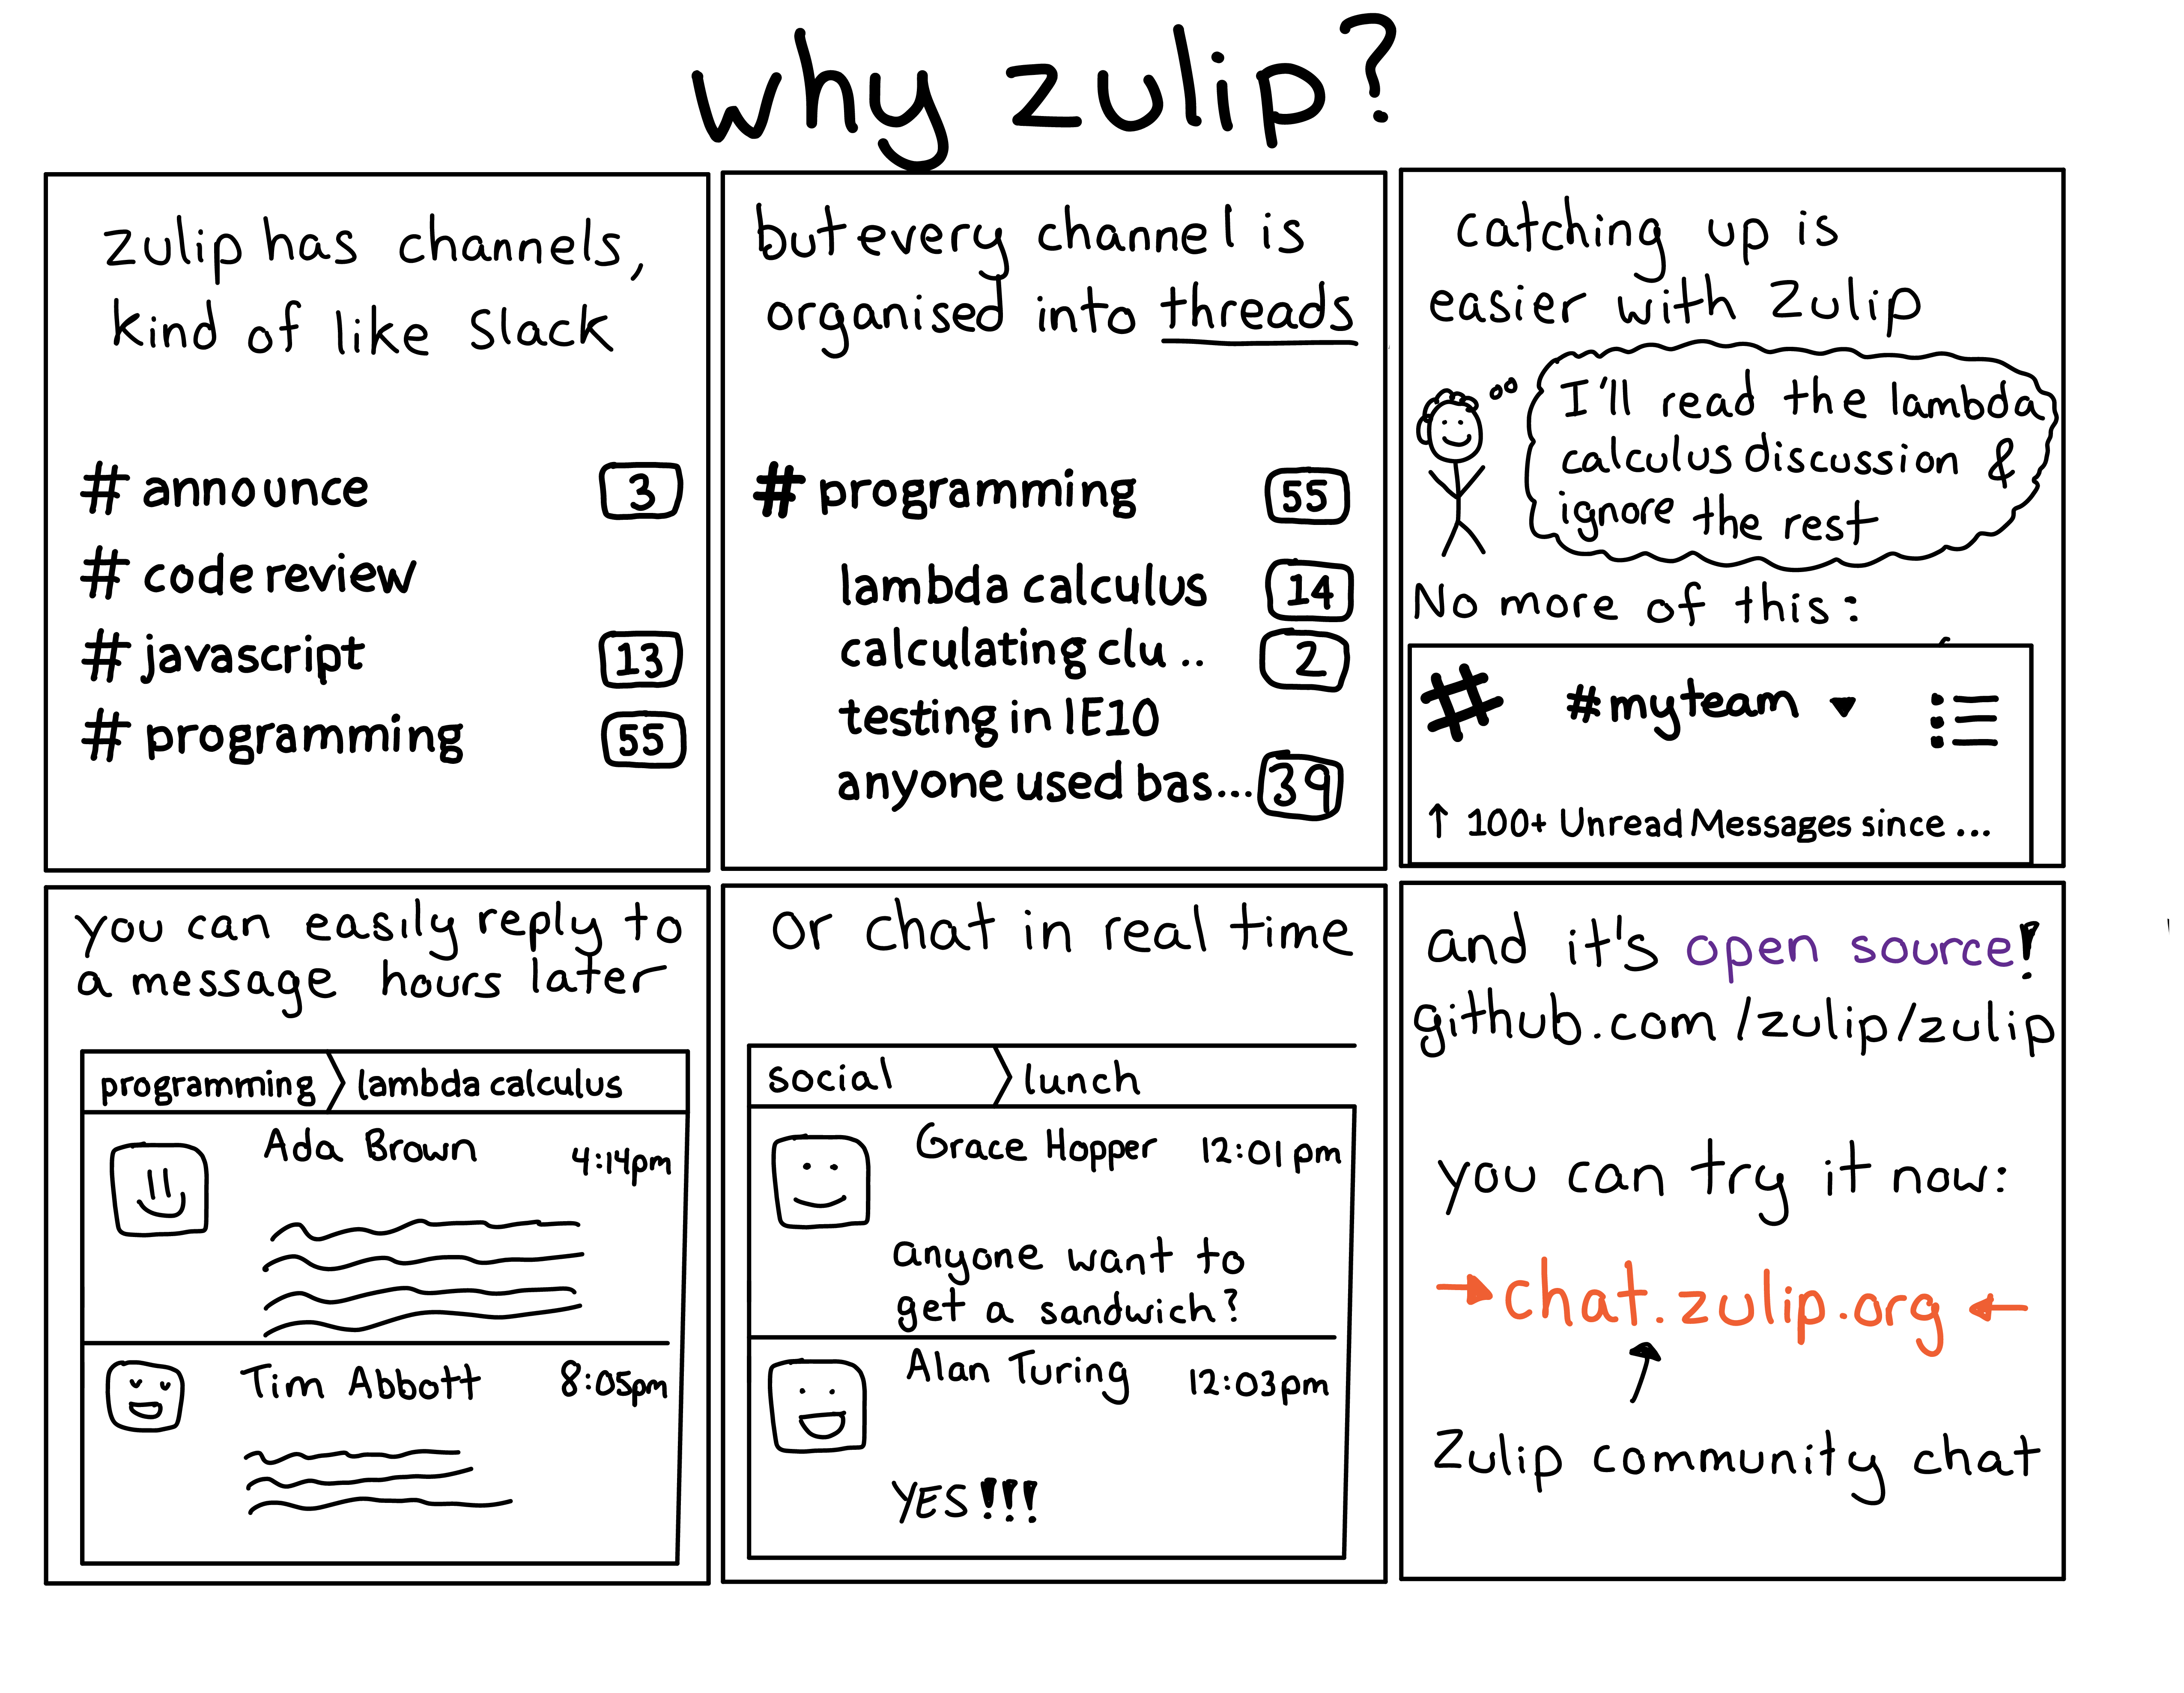 why zulip?
zulip has channels,
kind of like slack
# announce 3
# codereview
# javascript 13
# programming 55
but every channel is
organised into threads
# programming 55
lambda calculus 14
calculating clu .. 2
testing in IE10
anyone used bas... 39
catching up is
easier with zulip
I'll read the lambda
calculus discussion &
ignore the rest
No more of this:
# #myteam
↑ 100+ Unread Messages since ...
you can easily reply to
a message hours later
programming lambda calculus
Ada Brown 4:14pm
Tim Abbott 8:05pm
or chat in real time
social lunch
Grace Hopper 12:01pm
anyone want to
get a sandwich?
Alan Turing 12:03pm
YES!!!
and it's open source!
github.com/zulip/zulip
you can try it now:
→ chat.zulip.org ←
Zulip community chat